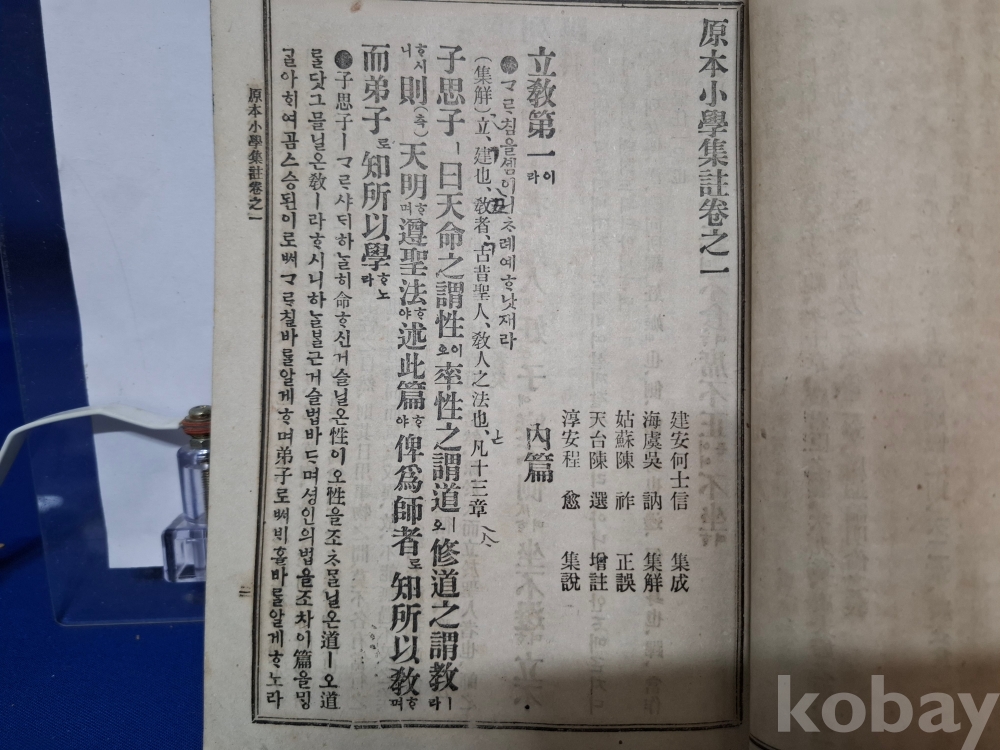 原本小學集註卷之一
建安何士信 集成
海虞吳 訥 集解
姑蘇陳 祚 正誤
天台陳 選 增註
淳安程 愈 集說
內篇
立敎第一이라
●ᄀᆞᄅᆞ침을셰미니ᄎᆞ례예ᄒᆞ낫재라
(集解)立、建也、敎者、古昔聖人、敎人之法也、凡十三章
子思子ㅣ曰天命之謂性이오率性之謂道ㅣ오修道之謂敎ㅣ라
ᄒᆞ시니則(측)天明ᄒᆞ며遵聖法ᄒᆞ야述此篇ᄒᆞ야俾爲師者로知所以敎ᄒᆞ며
而弟子로知所以學ᄒᆞ노라
●子思子ㅣᄀᆞᄅᆞ샤ᄃᆡ하ᄂᆞᆯ히命ᄒᆞ신거슬닐온性이오性을조ᄎᆞᄆᆞᆯ닐온道ㅣ오道
ᄅᆞᆯ닷그ᄆᆞᆯ닐온敎ㅣ라ᄒᆞ시니하ᄂᆞᆯᄇᆞᆯ근거슬법바ᄃᆞ며셩인의법을조차이篇을ᄆᆡᆼ
ᄀᆞᆯ아ᄒᆡ여곰스승된이로ᄡᅥᄀᆞᄅᆞ칠바ᄅᆞᆯ알게ᄒᆞ며弟子로ᄡᅥᄇᆡ홀바ᄅᆞᆯ알게ᄒᆞ노라
原本小學集註卷之一
kobay